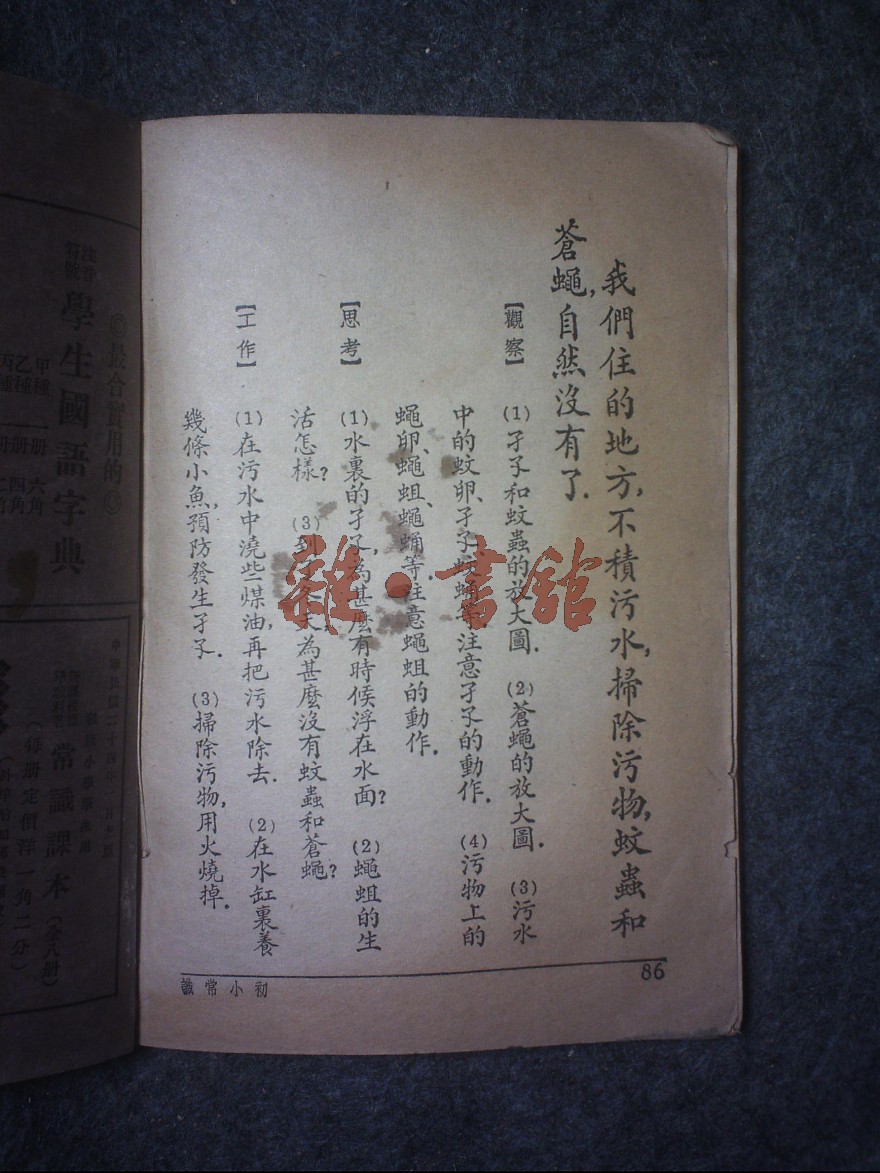 我們住的地方,不積污水,掃除污物,蚊蟲和
蒼蠅,自然沒有了.
【觀察】 (1)孑孓和蚊蟲的放大圖. (2)蒼蠅的放大圖. (3)污水
中的蚊卵、孑孓、蚊蛹等,注意孑孓的動作. (4)污物上的
蠅卵、蠅蛆、蠅蛹等,注意蠅蛆的動作.
【思考】 (1)水裏的孑孓,為甚麼有時候浮在水面? (2)蠅蛆的生
活怎樣? (3)到了冬天,為甚麼沒有蚊蟲和蒼蠅?
【工作】 (1)在污水中澆些煤油,再把污水除去. (2)在水缸裏養
幾條小魚,預防發生孑孓. (3)掃除污物,用火燒掉.
86
初小常識
雜·書館
◎最合實用的◎
注音符號
學生國語字典
甲種 一册 六角
乙種 四角
丙種
常識課本(全八册)
(每册定價洋一角二分)